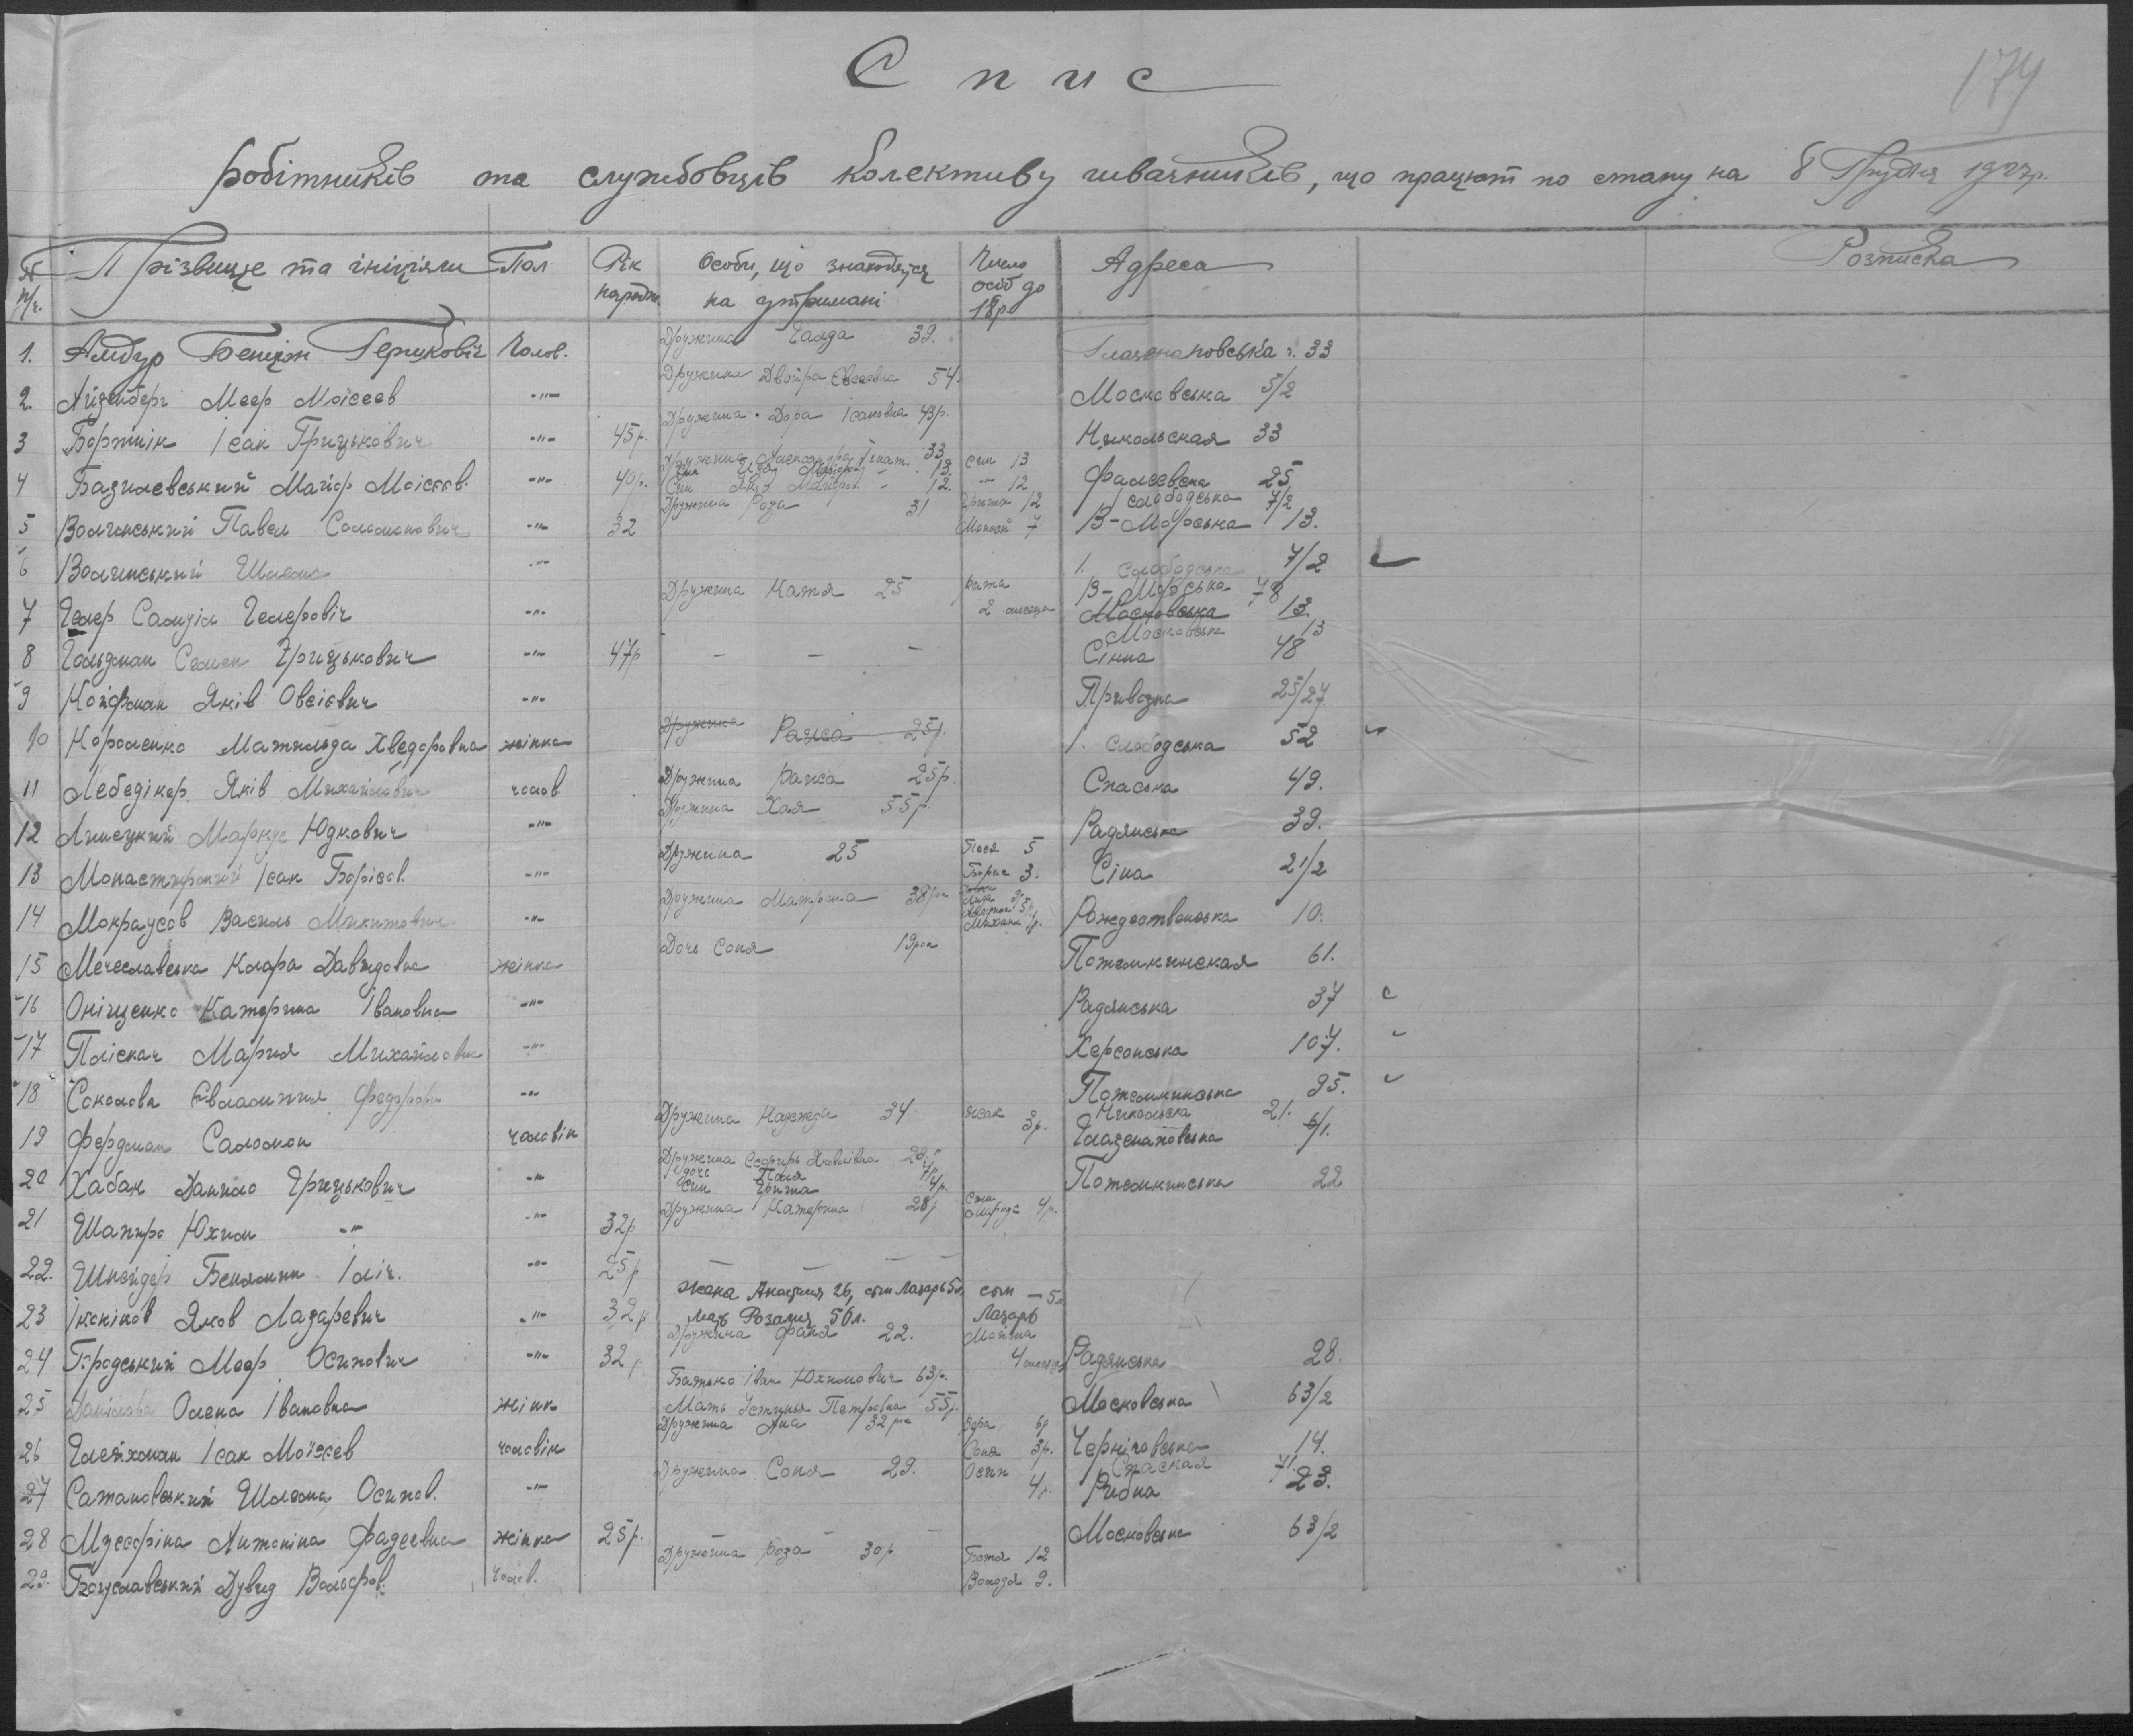 174
Спис
робітників та службовців колективу швачників, що працюют по стану на 8 Грудня 1927р.
№ п/ч. Прізвище та ініціяли Пол Рік народж. Особи, що знаходяться на утримані Число осіб до 18р Адреса Розписка
1. Амбур Герцкович Чолов. Дружина 39. 33
2. Айзенберг Меер Моісеев -"- Дружина Двойра Евсеевна 54. Московська 5/2
3 Бортнік Ісак Грицькович -"- 45р. Дружина Дора Ісаковна 43р. Никольская 33
4 Базилевський Майор Моісеєв. -"- 40р. Дружина Александра Ігнат. 33 Син 13. Син Яків 12. син 13 - 12 Фалеевска 25
5 Волинський Павел Соломонович -"- 32 Дружина Роза 31 Гриша 12 7 Слободська 7/2 В-Морська 13.
6 Волинський Шлема -"- 1. Слободська 7/2
7 Гелер Самуіл Гелеровіч -"- Дружина Катя 25 2 месяца В-Морська 78 Московська 13. Московська 13
8 Гольдман Семен Грицькович -"- 47р - - - Сінна 48
9 Койфман Яків Овсієвич -"- Привозна 25/27
10 Короленко Матильда Хведоровна жінка Дружина Раиса 25р. 1. Слободська 52
11 Лебедікер Яків Михайлович чолов Дружина Раиса 25р. Спаська 49.
12 Липецкий Маркус Юдкович -"- Дружина Хая 55р. Радянська 39.
13 Монастирский Ісак Борісов. -"- Дружина 25 Песя 5 Борис 3. Сіна 21/2
14 Мокраусов Василь Микитович -"- Дружина Матрона 38 рок Михаил Рождественська 10.
15 Мечеславська Клара Давидовна жінка Дочь Соня 19 рок Потемкинская 61.
16 Оніщенко Катерина Івановна -"- Радянська 37
17 Поліскач Мария Михайловна -"- Херсонська 107.
18 Соколова Евлампия Федоровн -"- Потемкинська 95.
19 Фердман Саломон чоловік Дружина Надежда 34 Исак 3р. Никольска 21. Глазенаповська 6/1.
20 Хабак Данило Грицькович -"- Дружина Яковлівна 28. дочь Поля 7р син Гриша 4р. Потемкинська 22
21 Шапиро Юхим -"- -"- 32р Дружина Катерина 28р 4р.
22. Шнейдер Бенямин Іліч. -"- 25р - - -
23 Яков Лазаревич -"- 32р Жена Анастасия 26, сын Лазарь 5л. Мать Розалия 56л. сын Лазарь - 5л
24 Бродський Меер Осипович -"- 32р Дружина Фаня 22. 4 месяця Радянська 28.
25 Данилова Олена Івановна жінк Батько Іван Юхимович 63р. Мать Устинья Петровна 55р. Московська 63/2
26 Глейхман Ісак Моісеєв чоловік Дружина Аня 32 рок Вера 6р Соня 3р. Чернігівська 14.
27 Сатановський Шлема Осипов. -"- Дружина Соня 29. Осип 4р. Спаская 71. Рибна 23.
28 Антоніна Фадеевна жінка 25р. - - - Московська 63/2
29. Богуславський Дувид Вольфов. Чолов. Дружина Роза 30р. 12 Володя 9.